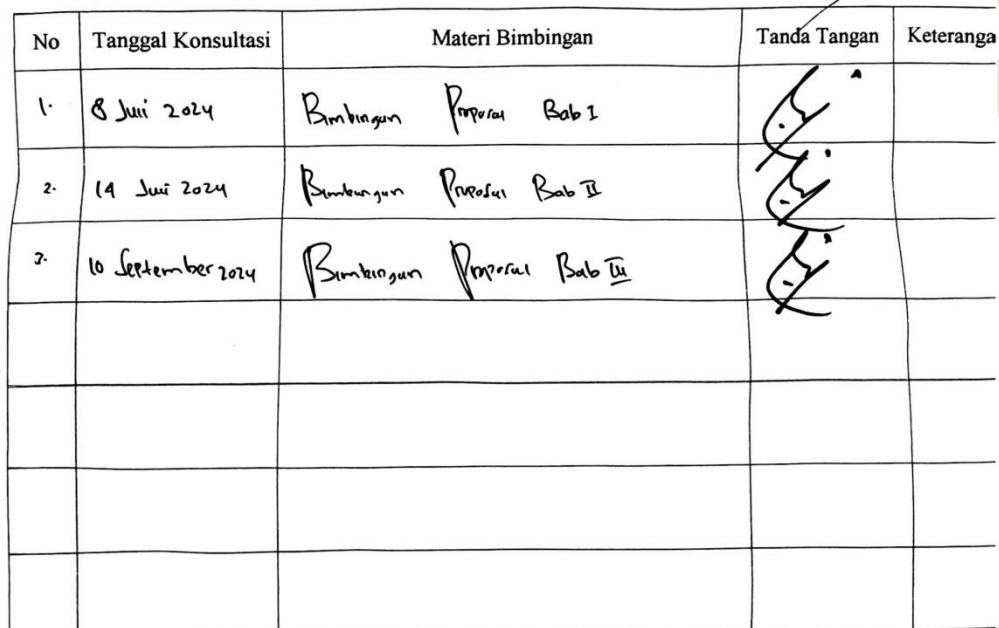 No Tanggal Konsultasi Materi Bimbingan Tanda Tangan Keteranga
1. 8 Juni 2024 Bimbingan Proposal Bab I
2. 14 Juni 2024 Bimbingan Proposal Bab II
3. 10 September 2024 Bimbingan Proposal Bab III